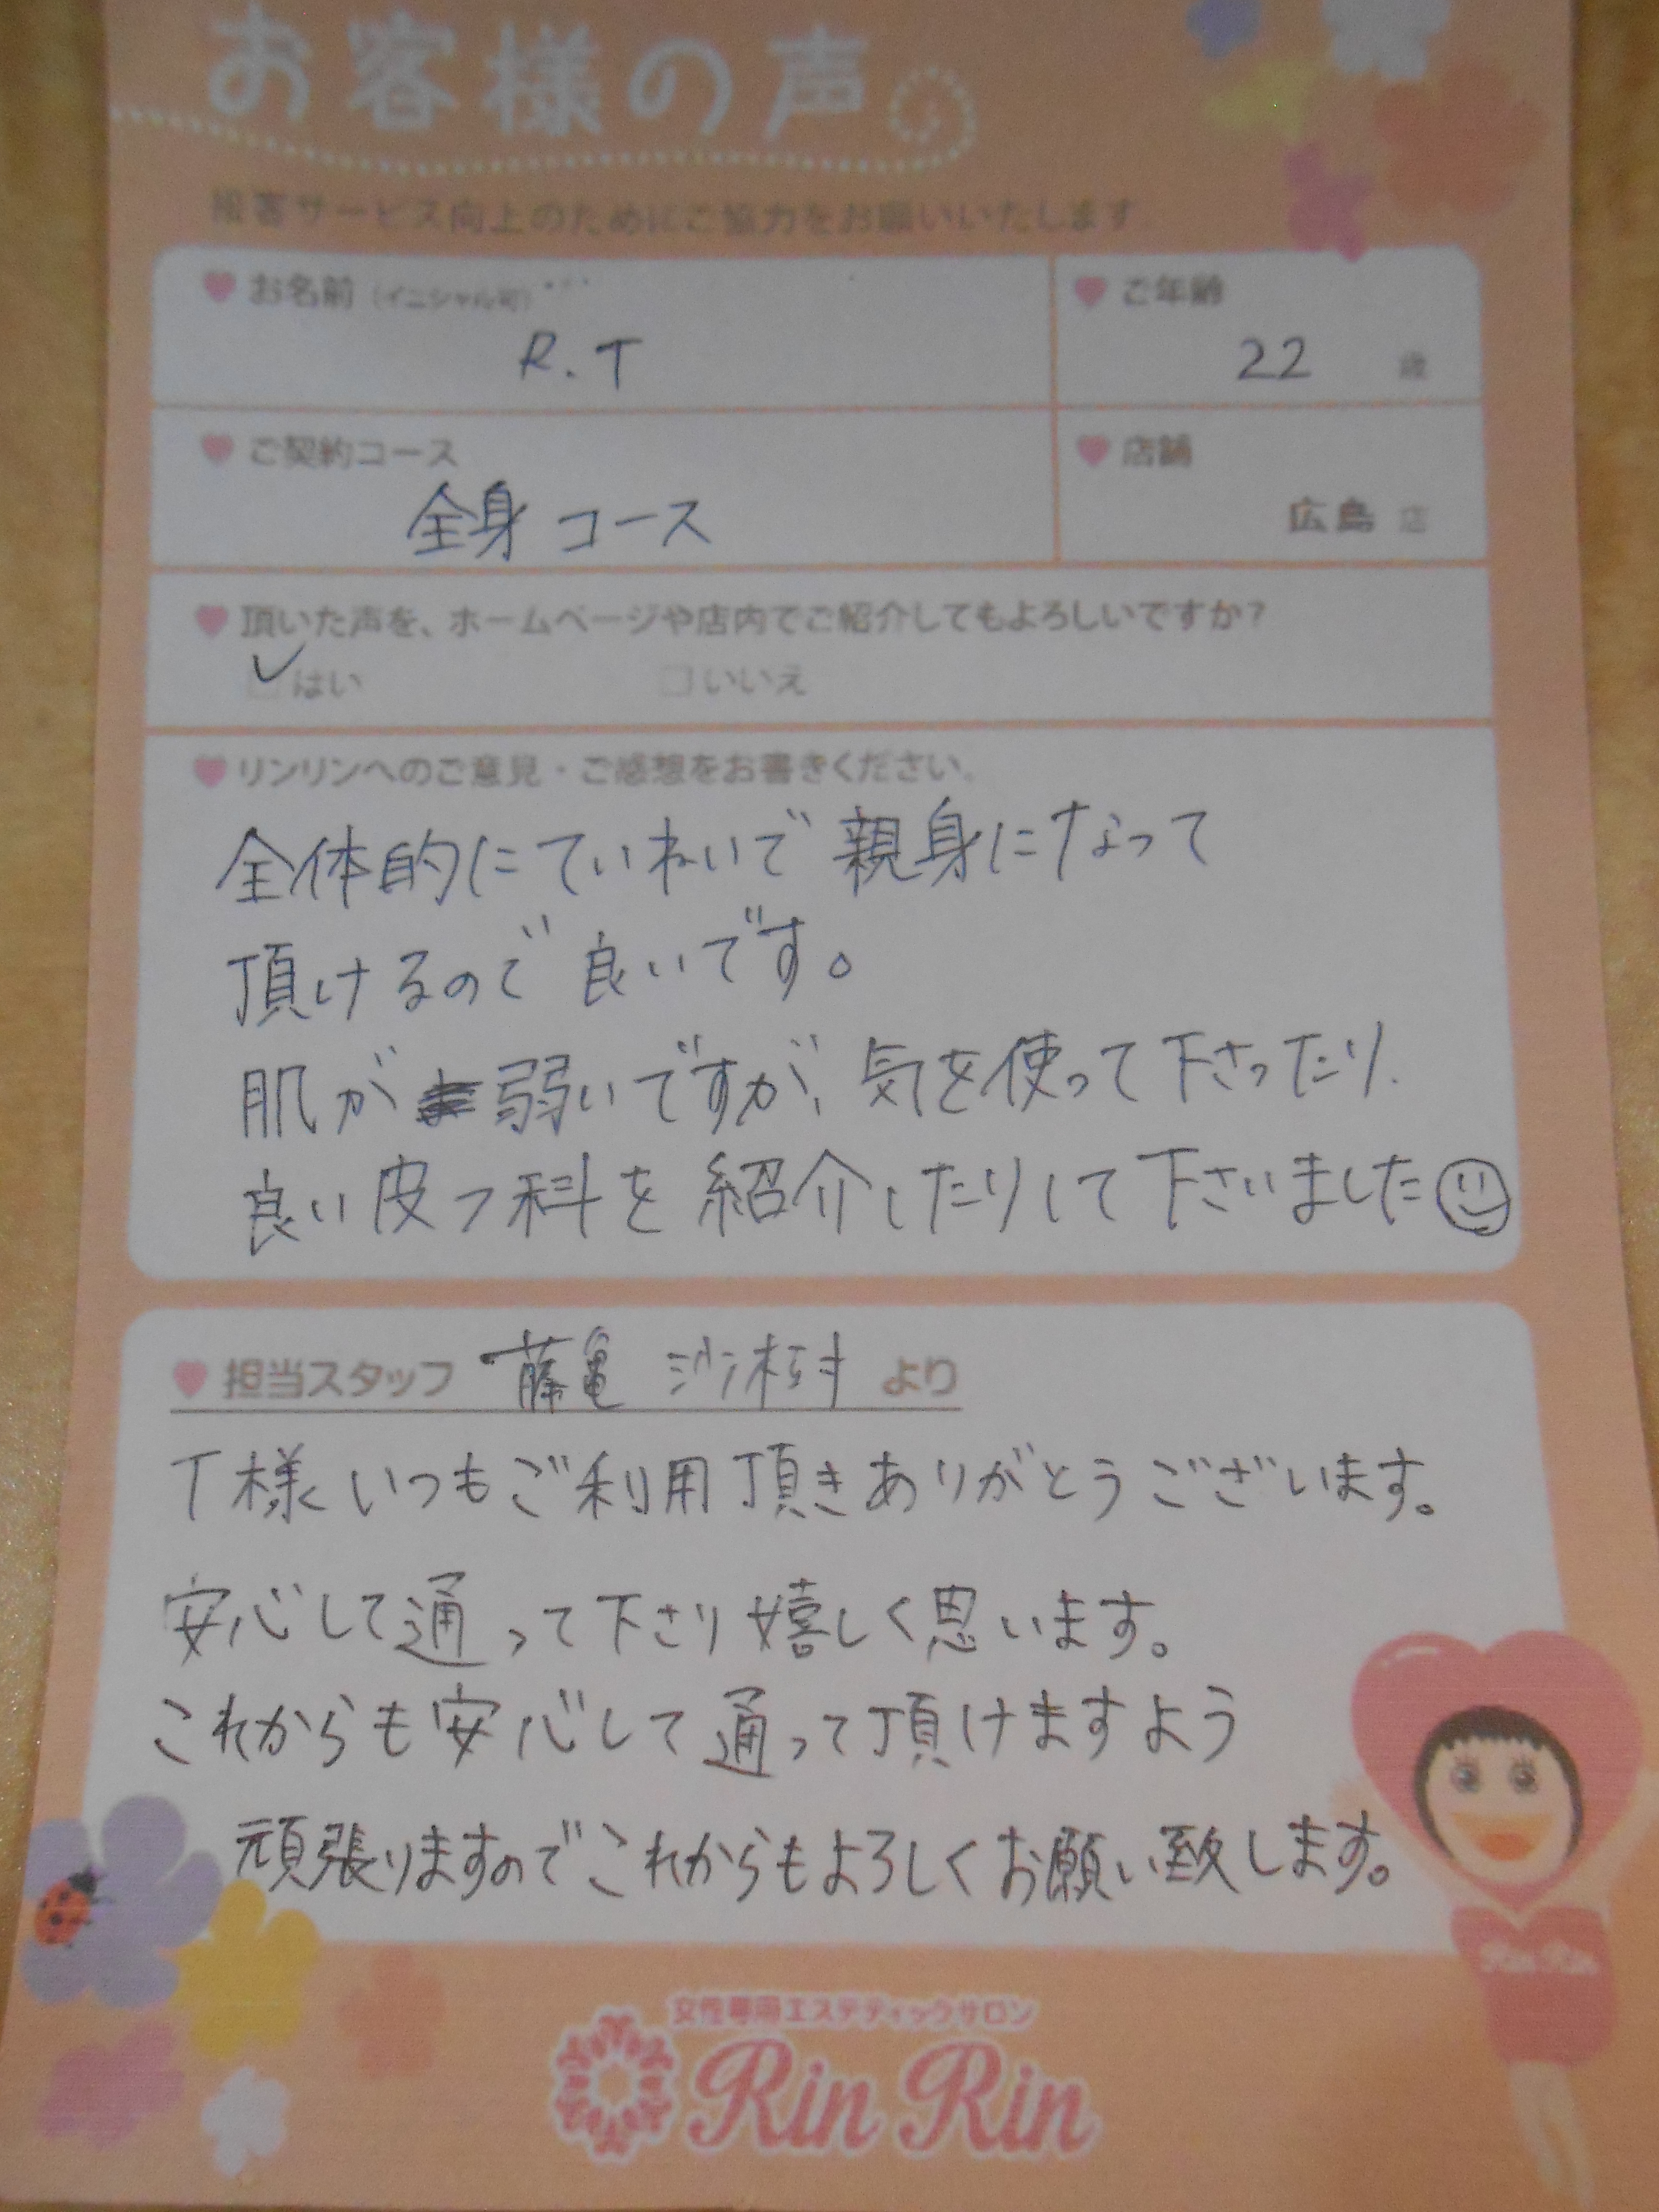 お客様の声
接客サービス向上のためにご協力をお願いいたします
お名前（イニシャル可）
R.T
ご年齢
22 歳
ご契約コース
全身コース
店舗
広島 店
頂いた声を、ホームページや店内でご紹介してもよろしいですか？
はい いいえ
リンリンへのご意見・ご感想をお書きください。
全体的にていねいで親身になって
頂けるので良いです。
肌が弱いですが、気を使って下さったり
良い皮フ科を紹介したりして下さいました
担当スタッフ 藤亀 沙樹 より
T様いつもご利用頂きありがとうございます。
安心して通って下さり嬉しく思います。
これからも安心して通って頂けますよう
頑張りますのでこれからもよろしくお願い致します。
Rin Rin
女性専用エステティックサロン
Rin Rin